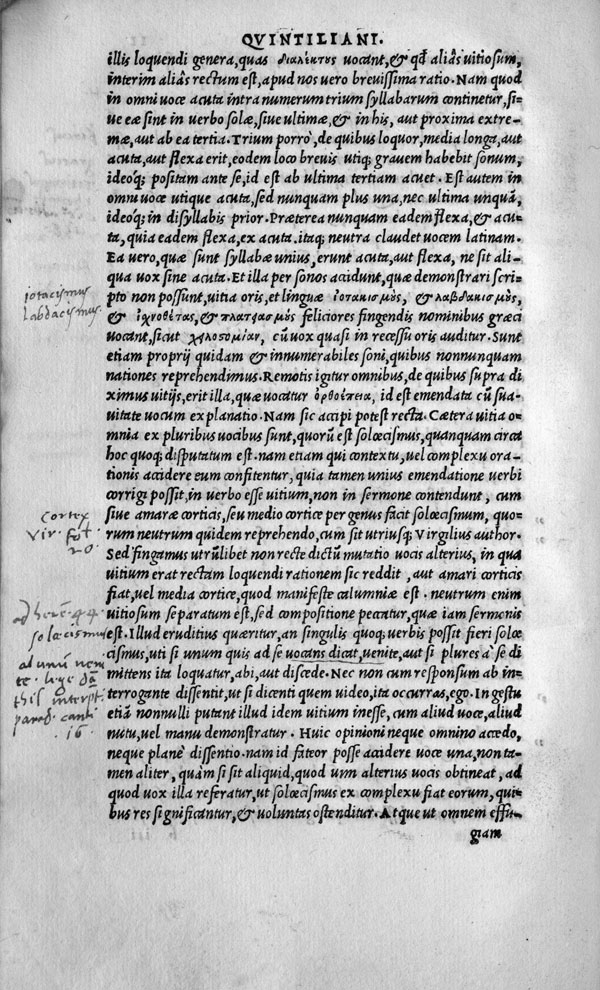 QVINTILIANI.
illis loquendi genera, quas διαλέκτους vocant, & qđ aliâs uitiosum,
interim aliâs rectum est, apud nos uero breuissima ratio. Nam quod
in omni uoce acuta intra numerum trium syllabarum continetur, si-
ue eæ sint in uerbo solæ, siue ultimæ, & in his, aut proxima extre-
mæ, aut ab ea tertia. Trium porrò, de quibus loquor, media longa, aut
acuta, aut flexa erit, eodem loco breuis utiq; grauem habebit sonum,
ideoq; positam ante se, id est ab ultima tertiam acuet. Est autem in
omni uoce utique acuta, sed nunquam plus una, nec ultima unquã,
ideoq; in disyllabis prior. Præterea nunquam eadem flexa, & acu-
ta, quia eadem flexa, ex acuta. itaq; neutra claudet uocem latinam.
Ea uero, quæ sunt syllabæ unius, erunt acuta, aut flexa, ne sit ali-
qua uox sine acuta. Et illa per sonos accidunt, quæ demonstrari scri-
iotacismus
pto non possunt, uitia oris, et linguæ ἰοτακισμοὺς, & λαβδακισμοὺς,
labdacismus
& ἰχνοθέτας, & πλατιασμοὺς feliciores fingendis nominibus græci
uocant, sicut χηλοσομίαν, cũ uox quasi in recessu oris auditur. Sunt
etiam proprij quidam & innumerabiles soni, quibus nonnunquam
nationes reprehendimus. Remotis igitur omnibus, de quibus supra di
ximus uitijs, erit illa, quæ uocatur ὀρθοέπεια, id est emendata cũ sua-
uitate uocum explanatio. Nam sic accipi potest recta. Cætera uitia o-
mnia ex pluribus uocibus sunt, quorũ est solœcismus, quanquam circa
hoc quoq; disputatum est. nam etiam qui contextu, uel complexu ora-
tionis accidere eum confitentur, quia tamen unius emendatione uerbi
corrigi possit, in uerbo esse uitium, non in sermone contendunt, cum
Cortex
siue amaræ corticis, seu medio cortice per genus facit solœcismum, quo-
Vir.
rum neutrum quidem reprehendo, cum sit utriusq; Virgilius author.
Sed fingamus utrũlibet non recte dictũ mutatio uocis alterius, in qua
uitium erat rectam loquendi rationem sic reddit, aut amari corticis
fiat, uel media cortice, quod manifeste calumniæ est. neutrum enim
uitiosum separatum est, sed compositione peccatur, quæ iam sermonis
solæcismus
est. Illud eruditius quæritur, an singulis quoq; uerbis possit fieri solœ
cismus, uti si unum quis ad se uocans dicat, uenite, aut si plures à se di
mittens ita loquatur, abi, aut discede. Nec non cum responsum ab in-
terrogante dissentit, ut si dicenti quem uideo, ita occurras, ego. In gestu
etiã nonnulli putant illud idem uitium inesse, cum aliud uoce, aliud
16.
nutu, uel manu demonstratur. Huic opinioni neque omnino accedo,
neque planè dissentio. nam id fateor posse accidere uoce una, non ta-
men aliter, quàm si sit aliquid, quod uim alterius uocis obtineat, ad
quod uox illa referatur, ut solœcismus ex complexu fiat eorum, qui-
bus res significantur, & uoluntas ostenditur. Atque ut omnem effu-
giam